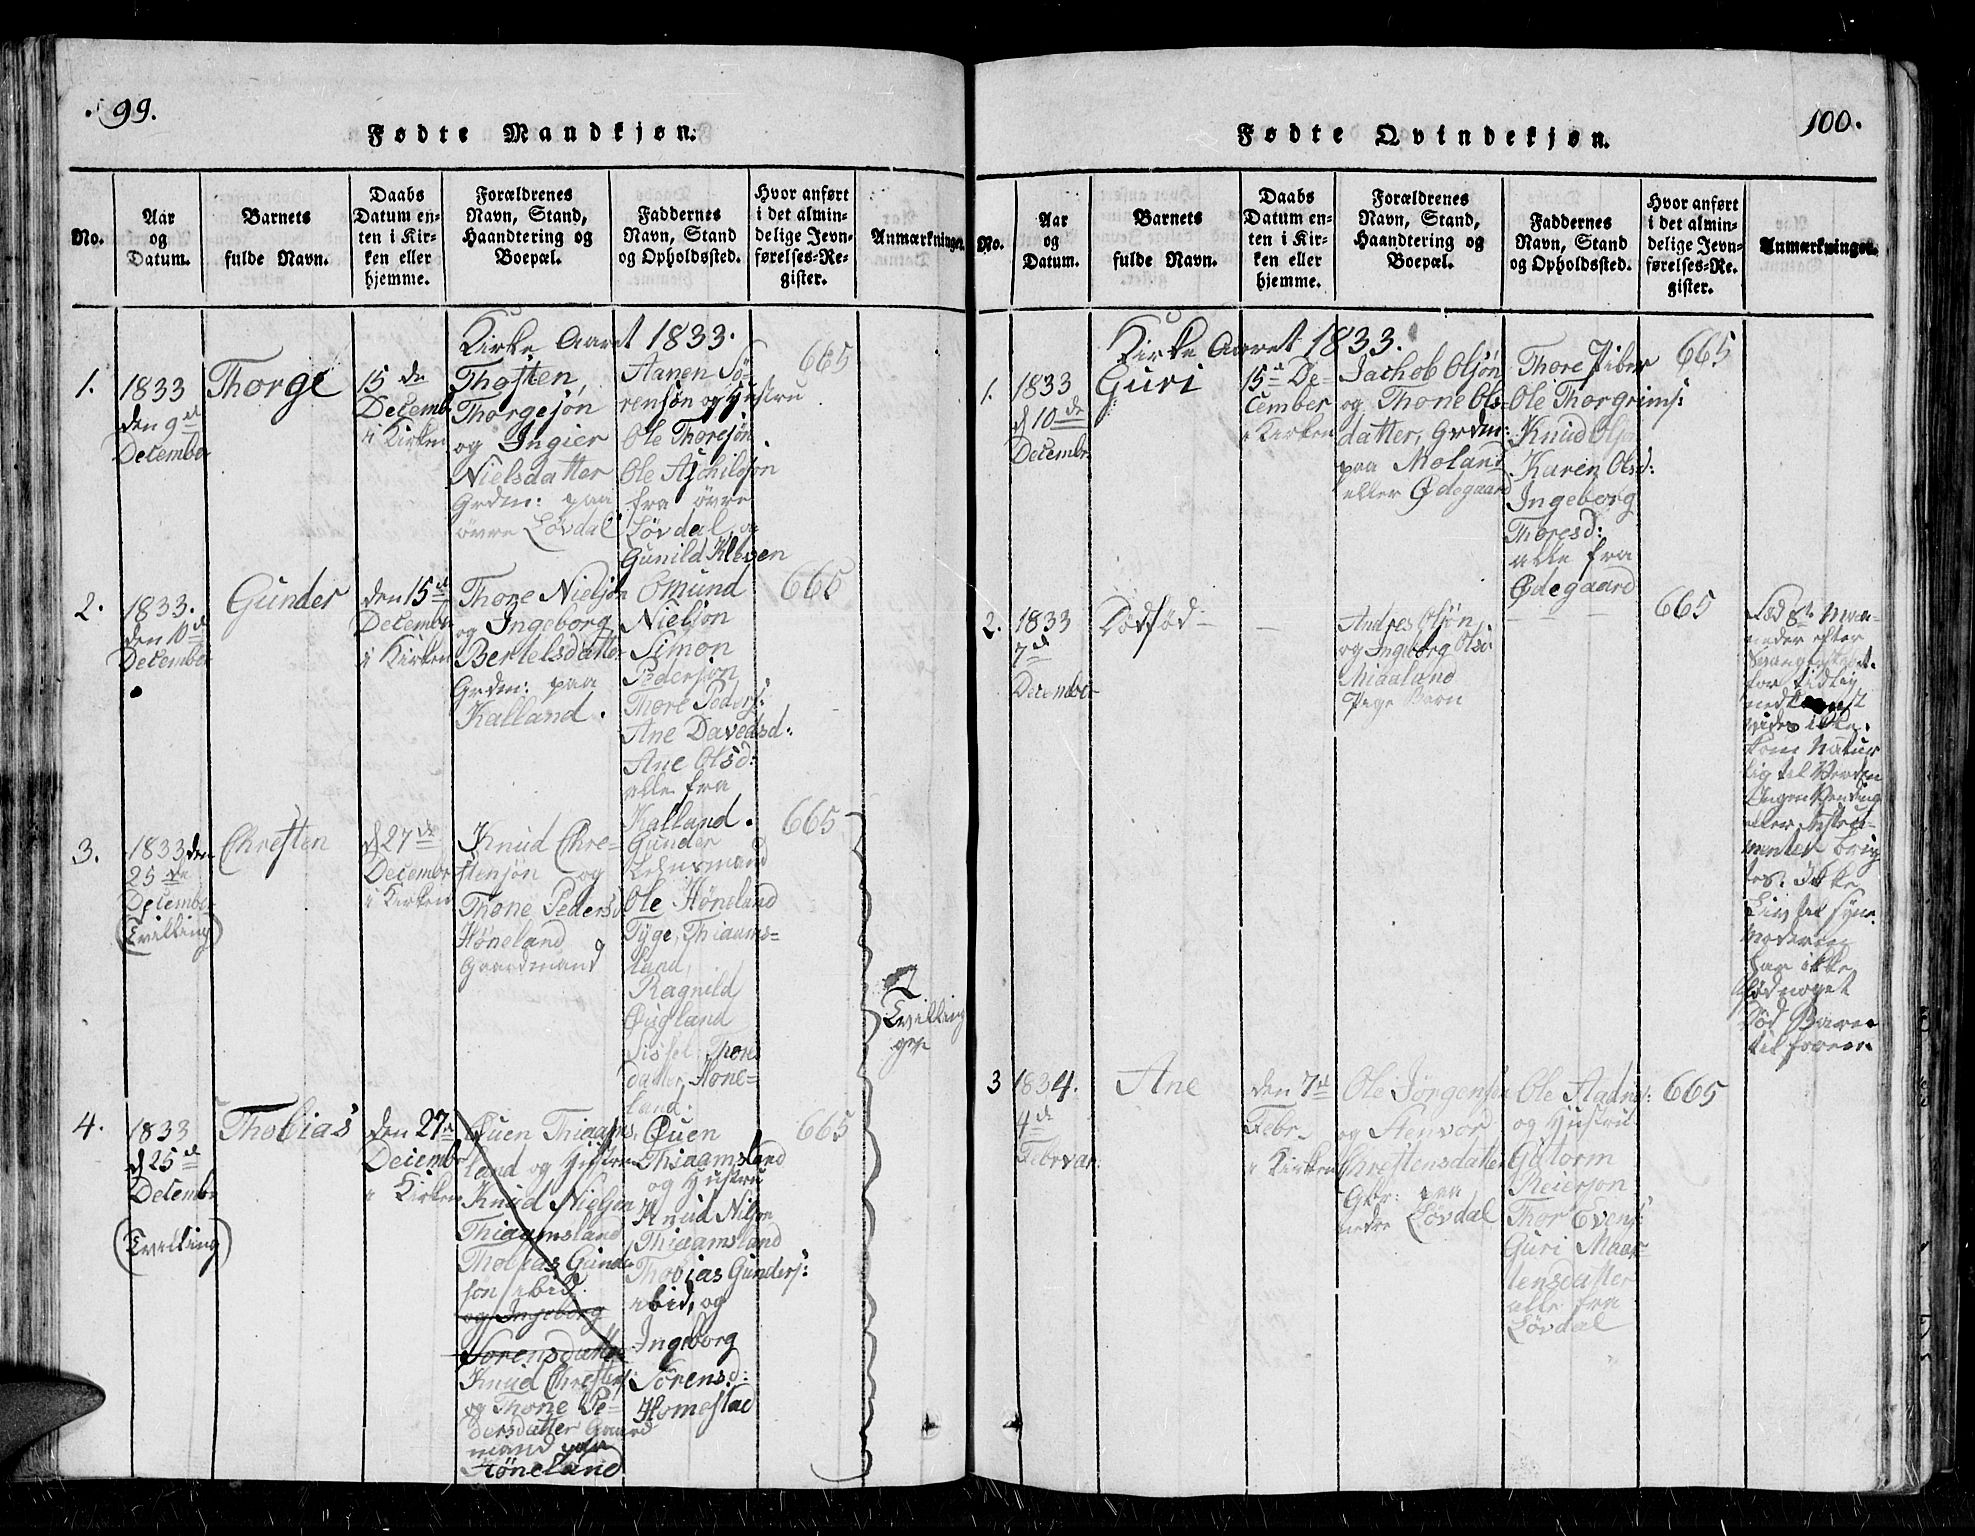 99.
Fødte Mandkjøn.
No.
Aar
og
Datum.
Barnets
fulde Navn.
Daabs
Datum en-
ten i Kir-
ken eller
hjemme.
Forældrenes
Navn, Stand,
Haandtering og
Boepæl.
Faddernes
Navn, Stand
og Opholdssted.
Hvor anført
i det almin-
delige Jevn-
førelses-Re-
gister.
Anmærkninger.
Kirke Aaret 1833.
1.
1833
den 9de
December
Thorge
15de
Decemb
i Kirken
Thosten,
Thorgesøn
og Ingier
Nielsdatter
Grdm: paa
øvre Løvdal
Aanen Sø-
rensøn og Hustru
Ole Thoresøn
Ole Aschilsøn
fra øvre
Løvdal og
Gunild Kleven
665
2.
1833.
den 10de
December
Gunder
den 15de
December
i Kirken
Thore Nielsøn
og Ingeborg
Bertelsdatter
Grdm: paa
Kalland.
Omund
Nielsøn
Simon
Pedersøn
Thore Peders:
Ane Davedsd:
Ane Olsd:
alle fra
Kalland.
665
3.
1833 den
25de
December
(Tvilling)
Chresten
d 27de
Decembr
i Kirken
Knud Chre-
stensøn og
Thone Pedersd
Høneland
Gaardmand
Gunder
Lensmand
Ole Høneland
Tyge, Thiaams-
land,
Ragnild
Øugland
Sissel Thors
datter, Høne-
land:
665
Tvilling
ger
4.
1833
d 25de
Decembr
(Tvilling)
Thobias
den 27de
Decembr
i Kirken
Øuen Thiaams
land og Hustru
Knud Nielsen
Thiaamsland
Thobias Gunder
søn ibid.
og Ingeborg
Sorensdatter
Knud Chrestens
og Thone Pe-
dersdatter Gaard
mand paa
Høneland
Øuen
Thiaamsland
og Hustru
Knud Nilsøn
Thiaamsland
Thobias Gunders:
ibid, og
Ingeborg
Sørensd:
Homestad
665
100.
Fødte Qvindekjøn.
No.
Aar
og
Datum.
Barnets
fulde Navn.
Daabs
Datum en-
ten i Kir-
ken eller
hjemme.
Forældrenes
Navn, Stand,
Haandtering og
Boepæl.
Faddernes
Navn, Stand
og Opholdssted.
Hvor anført
i det almin-
delige Jevn-
førelses-Re-
gister.
Anmærkninger.
Kirke Aaret 1833.
1.
1833
d 10de
Decembr
Guri
15de De-
cember
i Kirken
Jachob Olsøn
og Thone Ols-
datter, Grdm:
paa Moland
eller Ødegaard
Thore Piber
Ole Thorgrims:
Knud Olsøn
Karen Olsd:
Ingeborg
Thoresd:
alle fra
Ødegaard
665
2.
1833
7de
December
Dødfød
Andres Olsøn
og Ingeborg Olsd
Pige Barn
665
Fød 8te Maa-
neder efter
for tidlig
vides ikke.
kom Natur
lig til Verden
Ingen Vending
eller Instru-
menter brug
tes. Ikke
Liv til syne
Moderen
har ikke
født noget
Død Barn
til foren.
3
1834.
4de
Februar
Ane
den 7de
Febr.
i Kirken
Ole Jørgensen
og Stenvor
Chrestensdatter
Gbr: paa
nedre Løvdal
Ole Aadnes:
og Hustru
Gutorm
Reiersøn
Thor Evens:
Guri Maar-
tensdatter
alle fra
Løvdal
665